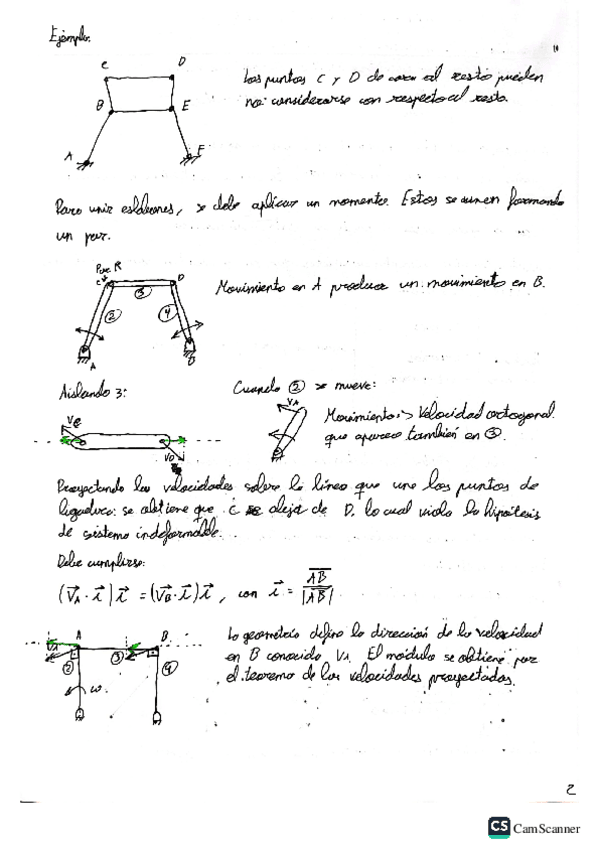 Ejemplo.
C D
Los puntos C y D de cara al resto pueden
B E
no considerarse con respecto al resto.
A F
Para unir eslabones, se debe aplicar un momento. Estos se unen formando
un par.
Par R
C D
3
Movimiento en A produce un movimiento en B.
2 4
A B
Aislando 3:
Cuando 2 se mueve:
VA
VC
Movimiento -> Velocidad ortogonal
que aparece también en 3.
VD
Proyectando las velocidades sobre la línea que une los puntos de
ligadura: se obtiene que C se aleja de D, lo cual viola la hipótesis
de sistema indeformable.
Debe cumplirse:
(VA · i) i = (VB · i) i, con i = AB / |AB|
VA A B
La geometría define la dirección de la velocidad
2 3 4
en B conocido VA. El módulo se obtiene por
ω
el teorema de las velocidades proyectadas.
2
CS CamScanner